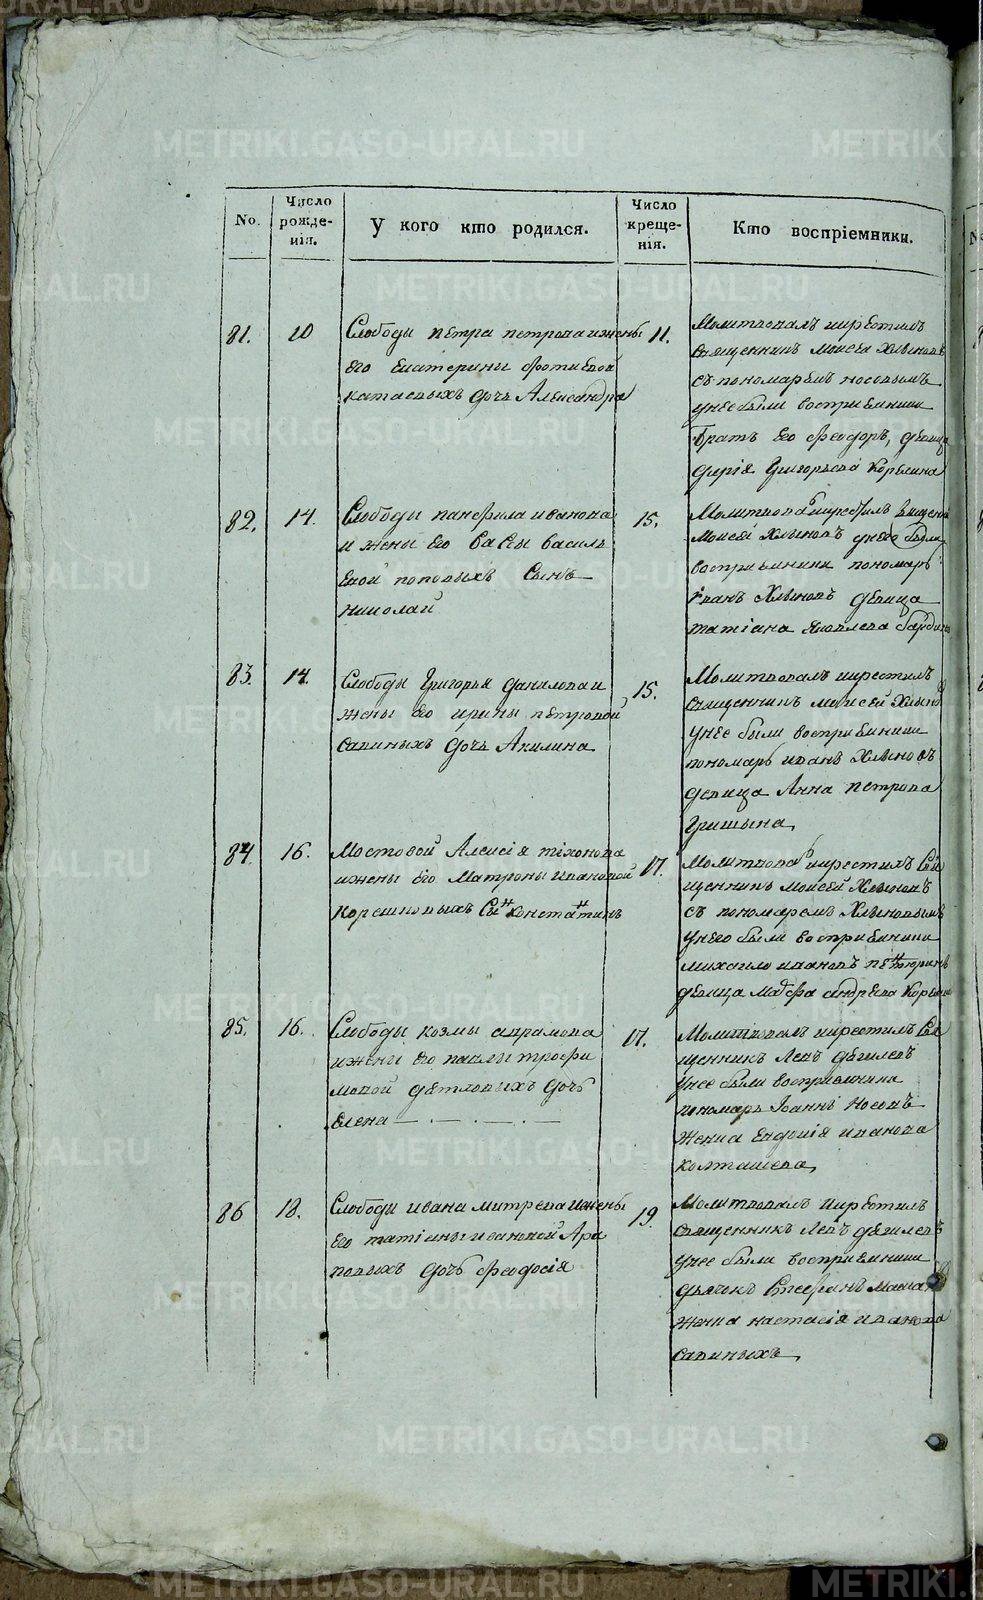 No.
Число рожденія.
У кого кто родился.
Число крещенія.
Кто воспріемники.
81.
10
Слободы петра петрова ижены
его Екатерины фотиевой
катаевыхъ дочь Александра
11.
Молитвовалъ икрестилъ
священникъ Моисей Хлыновъ
съ пономаремъ носовымъ
унее были восприемники
братъ его феодоръ, девица
дарія Григорьева Корелина
82.
14.
Слободы панфила иванова
и жены его Вассы василь
евой поповыхъ Сынъ
николай
15.
Молитвова икрестилъ
Моисей Хлыновъ унего были
восприемники пономарь
Иванъ Хлыновъ девица
татіана Яковлева
83.
14.
Слободы Григорья данилова и
жены его ирины петровой
савиныхъ дочь Акилина
15.
Молитвовалъ икрестилъ
священникъ моисей Хлынов
унее были восприемники
пономарь иванъ Хлыновъ
девица Анна петрова
Гришына
84
16.
Мостовой Алексія тіхонова
ижены его Матроны ивановой
Сын констатинъ
17.
Молитвова икрестилъ Свя
щенникъ моисей Хлыновъ
съ пономаремъ Хлыновымъ
унего были восприемники
михаило ивановъ
девица Марфа андреева
85.
16.
Слободы козмы аврамова
ижены его павлы трофи
мовой детловыхъ дочь
Елена — . — . — . —
17.
Молитвовалъ икрестилъ Свя
щенник Левъ дягилевъ
унее были восприемники
пономарь Іоаннъ Носовъ
Женка Евдокія иванова
колташева
86
18.
Слободы ивана митрева ижены
его татіаны ивановой Ара
повыхъ дочь феодосія
19.
Молитвовалъ икрестилъ
священник Левъ дягилевъ
унее были восприемники
дьячокъ Стефанъ
Женка настасія иванова
савиныхъ
METRIKI.GASO-URAL.RU